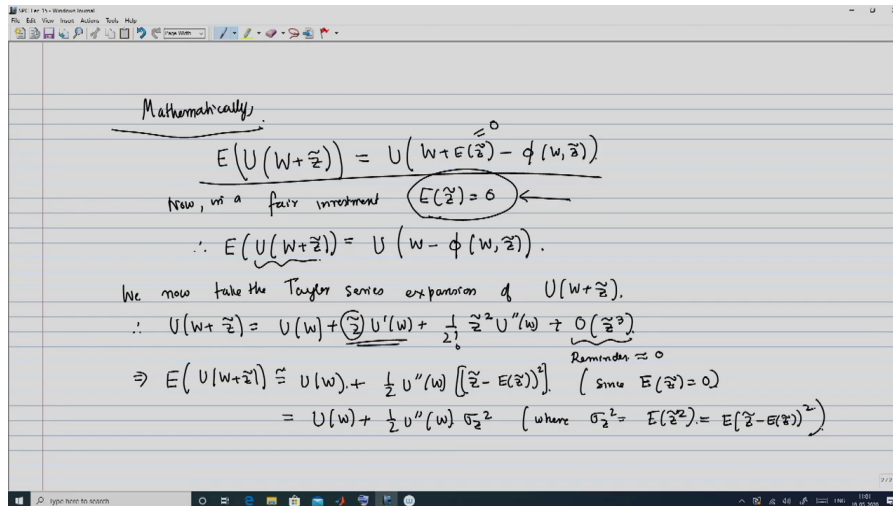 SPC Lec 15 - Windows Journal
File Edit View Insert Actions Tools Help
Page Width
Mathematically,
= 0
E(U(W+z̃)) = U(W+E(z̃) - ϕ(W,z̃))
Now, in a fair investment E(z̃) = 0 ←
∴ E(U(W+z̃)) = U(W - ϕ(W,z̃)).
We now take the Taylor series expansion of U(W+z̃).
∴ U(W+z̃) = U(W) + z̃ U'(W) + 1/2! z̃² U''(W) + O(z̃³)
Reminder ≈ 0
⇒ E(U(W+z̃)) ≅ U(W) + 1/2 U''(W) [(z̃ - E(z̃))²] (since E(z̃) = 0)
= U(W) + 1/2 U''(W) σz² (where σz² = E(z̃²) = E(z̃ - E(z̃))²)
2/2
Type here to search
11:01
ENG